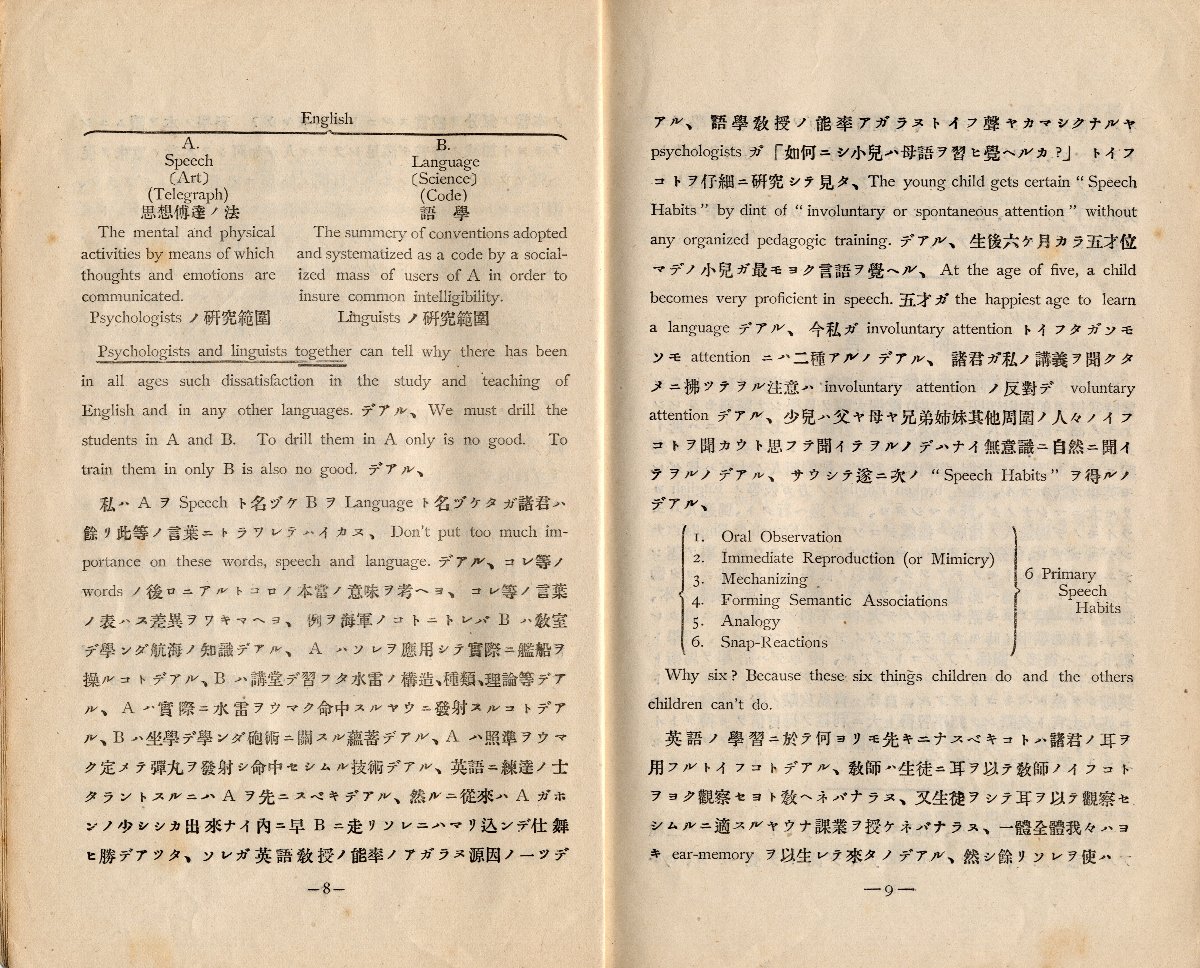 English
A.
Speech
(Art)
(Telegraph)
思想傳達ノ法
The mental and physical
activities by means of which
thoughts and emotions are
communicated.
Psychologists ノ研究範圍
B.
Language
(Science)
(Code)
語學
The summery of conventions adopted
and systematized as a code by a social-
ized mass of users of A in order to
insure common intelligibility.
Linguists ノ研究範圍
Psychologists and linguists together can tell why there has been
in all ages such dissatisfaction in the study and teaching of
English and in any other languages. デアル、We must drill the
students in A and B. To drill them in A only is no good. To
train them in only B is also no good. デアル、
私ハ A ヲ Speech ト名ヅケ B ヲ Language ト名ヅケタガ諸君ハ
餘リ此等ノ言葉ニトラワレテハイカヌ、Don't put too much im-
portance on these words, speech and language. デアル、コレ等ノ
words ノ後ロニアルトコロノ本當ノ意味ヲ考ヘヨ、コレ等ノ言葉
ノ表ハス差異ヲワキマヘヨ、例ヲ海軍ノコトニトレバ B ハ敎室
デ學ンダ航海ノ知識デアル、A ハソレヲ應用シテ實際ニ艦船ヲ
操ルコトデアル、B ハ講堂デ習フタ水雷ノ構造、種類、理論等デア
ル、A ハ實際ニ水雷ヲウマク命中スルヤウニ發射スルコトデア
ル、B ハ坐學デ學ンダ砲術ニ關スル蘊蓄デアル、A ハ照準ヲウマ
ク定メテ彈丸ヲ發射シ命中セシムル技術デアル、英語ニ練達ノ士
タラントスルニハ A ヲ先ニスベキデアル、然ルニ從來ハ A ガホ
ンノ少シシカ出來ナイ內ニ早 B ニ走リソレニハマリ込ンデ仕舞
ヒ勝デアツタ、ソレガ英語敎授ノ能率ノアガラヌ源因ノ一ツデ
—8—
アル、語學敎授ノ能率アガラヌトイフ聲ヤカマシクナルヤ
psychologists ガ「如何ニシ小兒ハ母語ヲ習ヒ覺ヘルカ?」トイフ
コトヲ仔細ニ研究シテ見タ、The young child gets certain “Speech
Habits” by dint of “involuntary or spontaneous attention” without
any organized pedagogic training. デアル、生後六ケ月カラ五才位
マデノ小兒ガ最モヨク言語ヲ覺ヘル、At the age of five, a child
becomes very proficient in speech. 五才ガ the happiest age to learn
a language デアル、今私ガ involuntary attention トイフタガソモ
ソモ attention ニハ二種アルノデアル、諸君ガ私ノ講義ヲ聞クタ
メニ拂ツテヲル注意ハ involuntary attention ノ反對デ voluntary
attention デアル、少兒ハ父ヤ母ヤ兄弟姉妹其他周圍ノ人々ノイフ
コトヲ聞カウト思フテ聞イテヲルノデハナイ無意識ニ自然ニ聞イ
テヲルノデアル、サウシテ遂ニ次ノ “Speech Habits” ヲ得ルノ
デアル、
1. Oral Observation
2. Immediate Reproduction (or Mimicry)
3. Mechanizing
4. Forming Semantic Associations
5. Analogy
6. Snap-Reactions
6 Primary
Speech
Habits
Why six? Because these six things children do and the others
children can't do.
英語ノ學習ニ於テ何ヨリモ先キニナスベキコトハ諸君ノ耳ヲ
用フルトイフコトデアル、敎師ハ生徒ニ耳ヲ以テ敎師ノイフコト
ヲヨク觀察セヨト敎ヘネバナラヌ、又生徒ヲシテ耳ヲ以テ觀察セ
シムルニ適スルヤウナ課業ヲ授ケネバナラヌ、一體全體我々ハヨ
キ ear-memory ヲ以生レテ來タノデアル、然シ餘リソレヲ使ハ
—9—